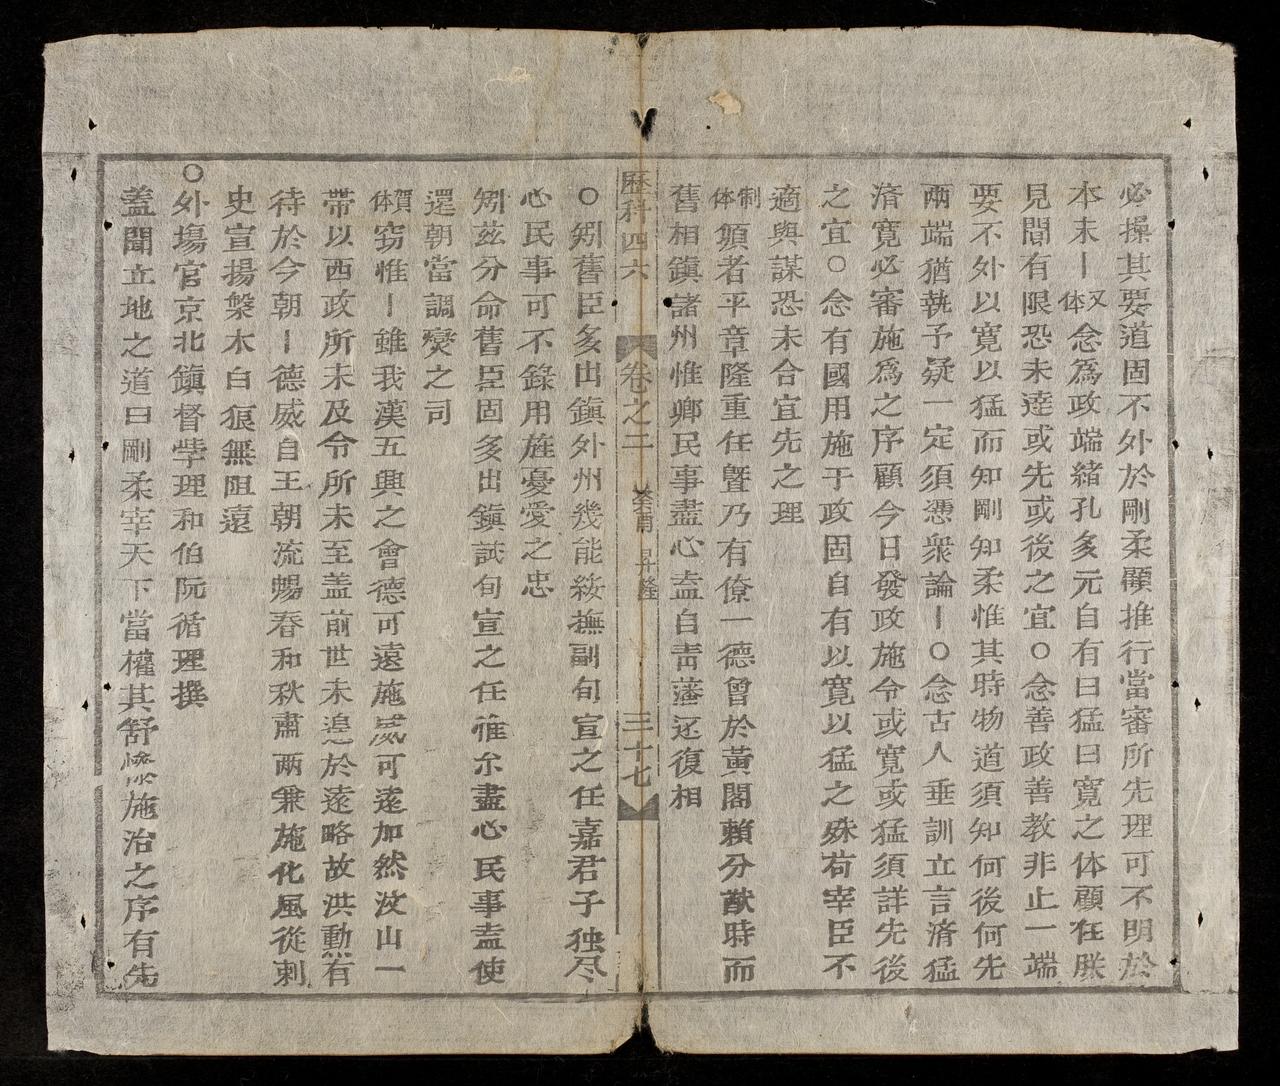 必操其要道固不外於剛柔顯推行當審所先理可不明於
本末丨又体念為政端緒孔多元自有曰猛曰寬之体顧在朕
見聞有限恐未逹或先或後之宜〇念善政善教非止一端
要不外以寬以猛而知剛知柔惟其時物道須知何後何先
兩端猶執予疑一定須憑衆論丨〇念古人垂訓立言済猛
済寬必審施爲之序顧今日發政施令或寬或猛須詳先後
之宜〇念有國用施于政固自有以寬以猛之殊苟宰臣不
適與謀恐未合宜先之理
制体頭者平章隆重任曁乃有僚一德曾於黃閣賴分猷時而
舊相鎮諸州惟鄉民事盡心盍自靑藩还復相
歷科四六 卷之二 癸酉 昇隆 三十七
〇矧舊臣多出鎮外州幾能綏撫副旬宣之任嘉君子独尽
心民事可不錄用旌憂愛之忠
矧兹分命舊臣固多出鎮試旬宣之任惟尓盡心民事盍使
還朝當調燮之司
賀体窃惟丨雖我漢五興之會德可遠施威可遠加然汶山一
帶以西政所未及令所未至盖前世未遑於遠略故洪勲有
待於今朝丨德威自王朝流暢春和秋肅兩兼施化風從刺
史宣揚槃木白狼無阻遠
〇外塲官京北鎮督學理和伯阮循理撰
蓋聞立地之道曰剛柔宰天下當權其舒慘施治之序有先